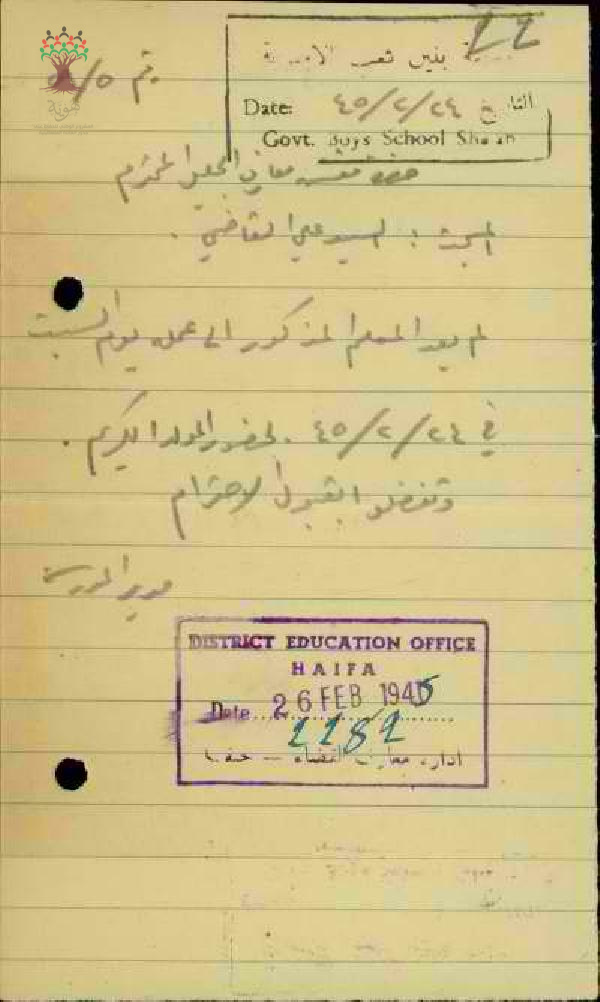 بنين شعب الاميرية
Date: ٤٥/٢/٢٤ التاريخ
Govt. Boys School Sha'ab
حضرة مفتش معارف المحترم
المبحث : السيد علي القاضي .
لم يعد المعلم المذكور الى عمله يوم السبت
في ٤٥/٢/٢٤ . لحضور المولد الكريم .
وتفضلوا بقبول الاحترام
مدير المدرسة
DISTRICT EDUCATION OFFICE
HAIFA
Date 26 FEB 1945
ادارة معارف القضاء — حيفا